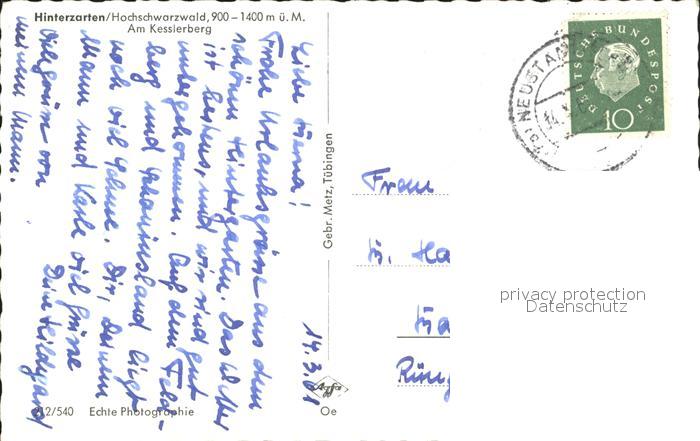 Hinterzarten/Hochschwarzwald, 900–1400 m ü. M.
Am Kesslerberg
14.3.61
Liebe
Frohe Urlaubsgrüsse aus dem
schönen Hinterzarten. Das Wetter
ist und wir sind gut
untergekommen. Auf dem Feld-
berg und Schauinsland liegt
noch viel Schnee. Dir, Deinem
Mann und Karle viel Grüsse
Deine Hildegard
Viele Grüsse von
meinem Mann.
Gebr. Metz, Tübingen
NEUSTADT
DEUTSCHE BUNDESPOST
10
Frau
privacy protection
Datenschutz
Agfa
212/540 Echte Photographie
Oe